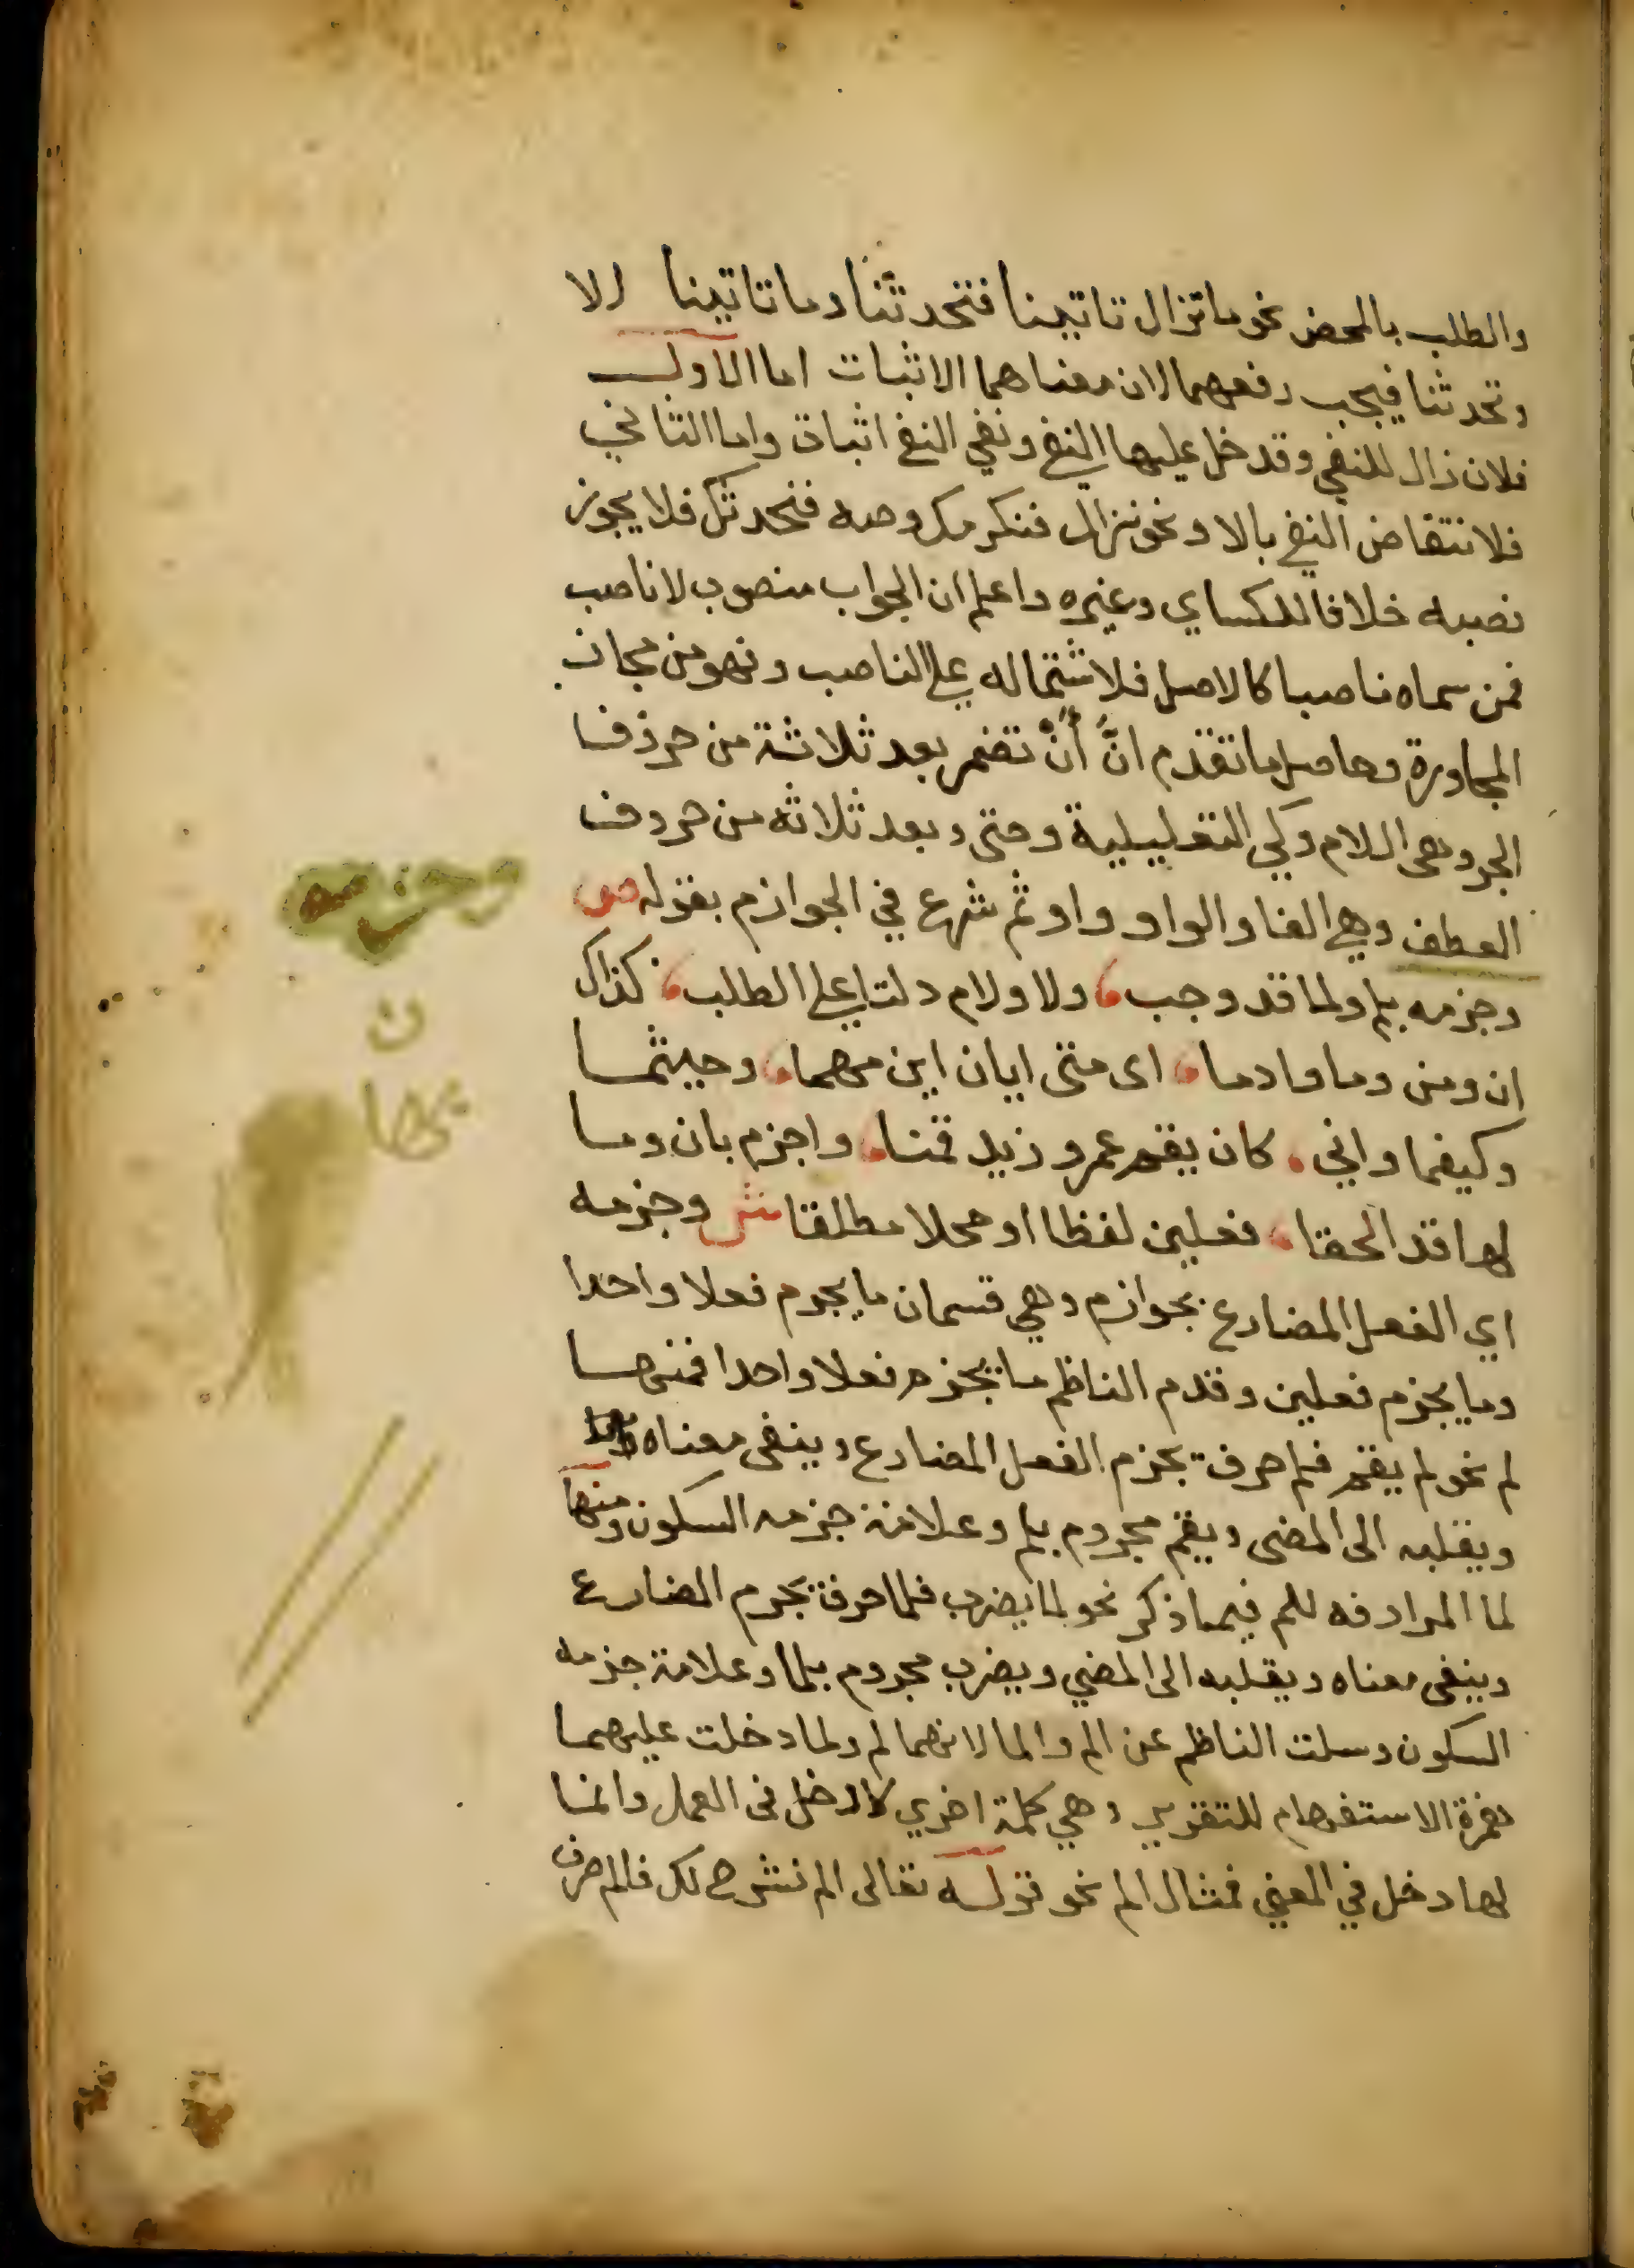 والطلب بالمحض نحو ما تزال تاتينا فتحدثنا وما تاتينا الا
وتحدثنا فيجب رفعهما لان معناهما الاثبات اما الاول
فلان زال للنفي وقد دخل عليها النفي ونفي النفي اثبات واما الثاني
فلانتقاض النفي بالا ونحو نزال فنكرمك وصه فنحدثك فلا يجوز
نصبه خلافا للكساي وغيره واعلم ان الجواب منصوب لا ناصب
فمن سماه ناصبا كالاصل فلاشتماله على الناصب وهو من مجاز
المجاورة وحاصل ما تقدم انَّ أنْ تضمر بعد ثلاثة من حروف
الجر وهي اللام وكي التعليلية وحتى وبعد ثلاثه من حروف
العطف وهي الفا والواو واو ثم شرع في الجوازم بقوله ص
وجزمه بلم ولما قد وجب، ولا ولام دلتا على الطلب، كذاك
ان ومن وما واذما، اي متى ايان اين مهما، وحيثما
وكيفما واني، كان يقم عمرو زيد قمنا، واجزم بان وما
لها قد الحقا، فعلين لفظا او محلا مطلقا ش وجزمه
اي الفعل المضارع بجوازم وهي قسمان ما يجزم فعلا واحدا
وما يجزم فعلين وقدم الناظم ما يجزم فعلا واحدا فمنها
لم نحو لم يقم فلم حرف يجزم الفعل المضارع وينفي معناه
ويقلبه الى المضى ويقم مجزوم بلم وعلامة جزمه السكون ومنها
لما المرادفه للم فيما ذكر نحو لما يضرب فلما حرف يجزم المضارع
وينفي معناه ويقلبه الى المضي ويضرب مجزوم بلما وعلامة جزمه
السكون وسكت الناظم عن الم والما لانهما لم ولما دخلت عليهما
همزة الاستفهام للتقرير وهي كلمة اخري لا دخل في العمل وانما
لها دخل في المعني فمثال الم نحو قوله تعالى الم نشرح لك فالم حرف